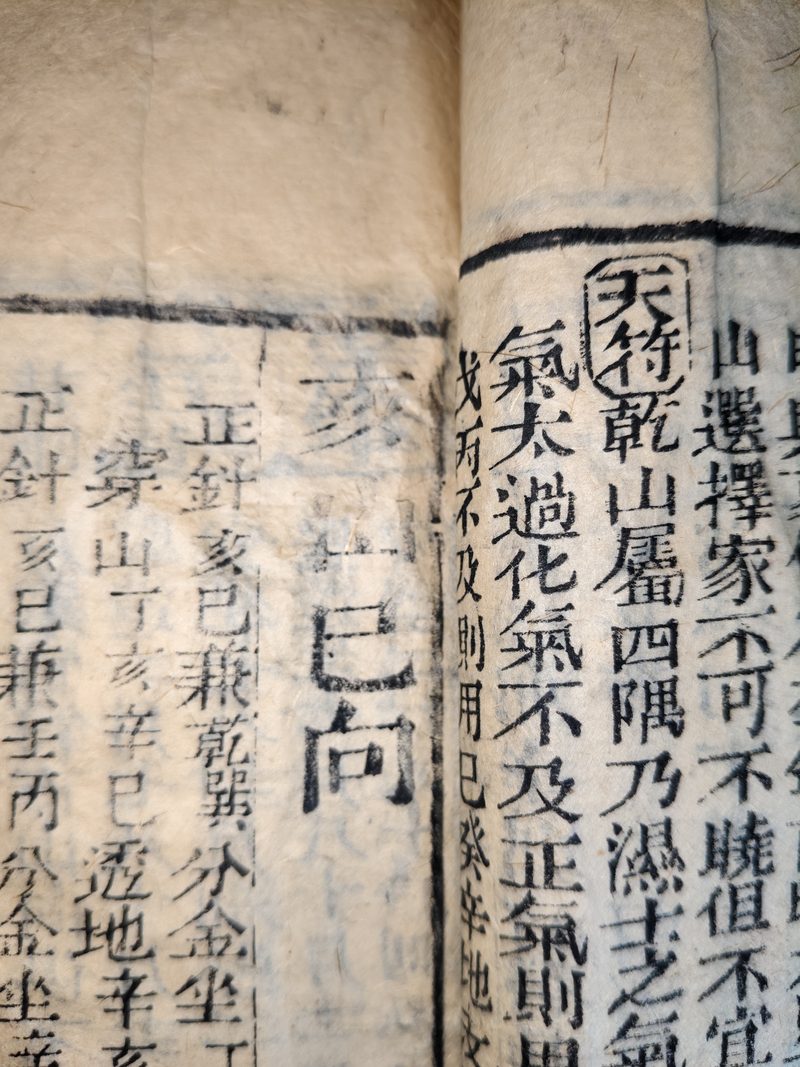 山選擇家不可不曉但不宜
天符乾山屬四隅乃濕土之氣
氣太過化氣不及正氣則用
戊丙不及則用己癸辛地支
亥山巳向
正針亥巳兼乾巽分金坐丁
穿山丁亥辛巳透地辛亥
正針亥巳兼壬丙分金坐辛